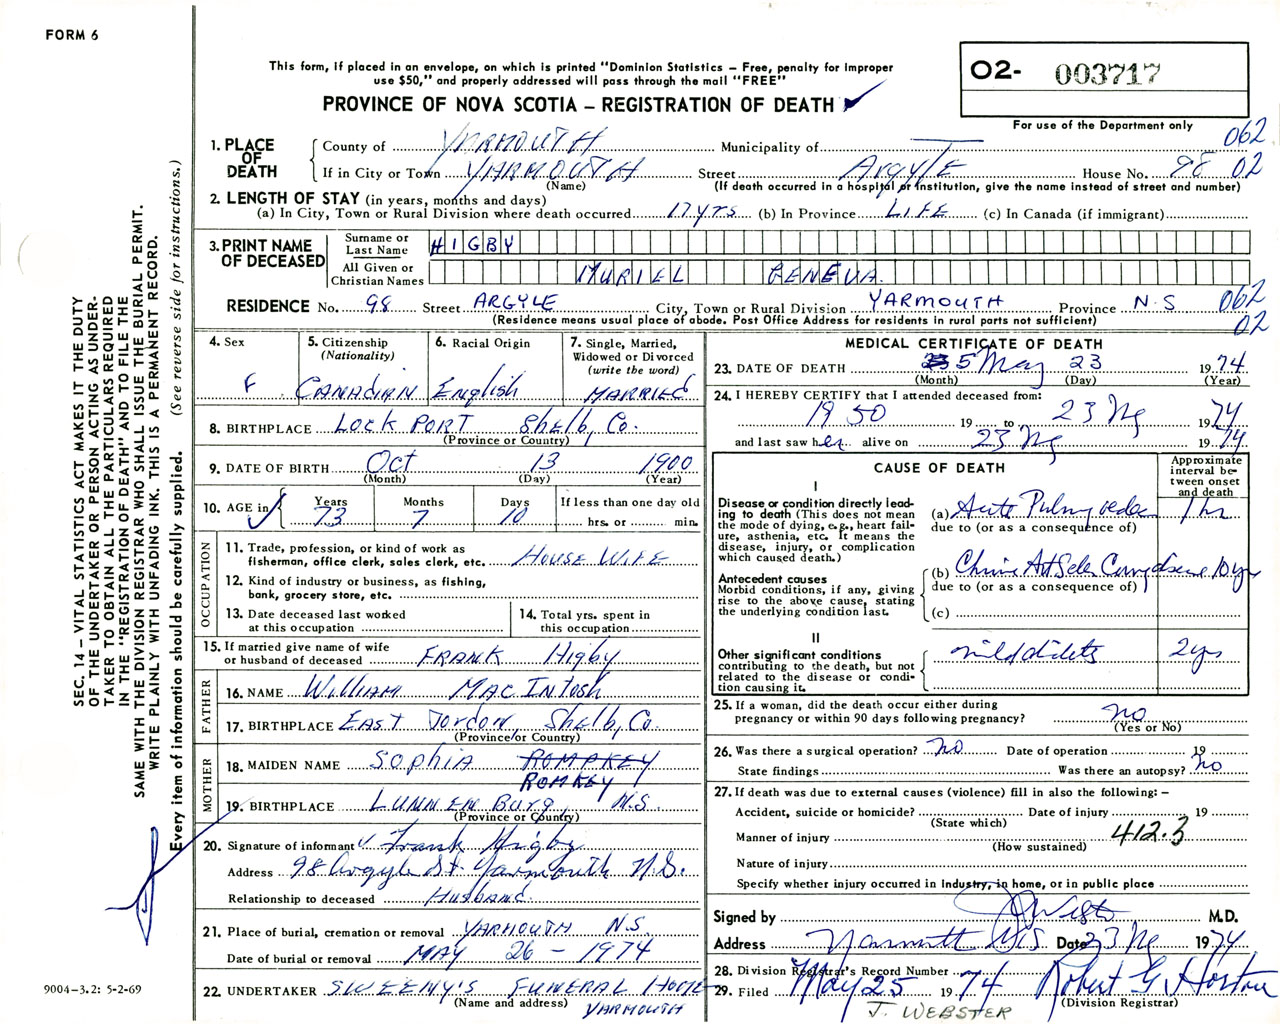 FORM 6
This form, if placed in an envelope, on which is printed "Dominion Statistics – Free, penalty for improper
use $50," and properly addressed will pass through the mail "FREE"
PROVINCE OF NOVA SCOTIA – REGISTRATION OF DEATH
O2- 003717
For use of the Department only
062
02
1. PLACE OF DEATH
County of YARMOUTH Municipality of
If in City or Town YARMOUTH Street ARGYLE House No. 98
(Name) (If death occurred in a hospital or institution, give the name instead of street and number)
2. LENGTH OF STAY (in years, months and days)
(a) In City, Town or Rural Division where death occurred 17 yrs (b) In Province LIFE (c) In Canada (if immigrant)
3. PRINT NAME OF DECEASED
Surname or Last Name HIGBY
All Given or Christian Names MURIEL GENEVA
RESIDENCE No. 98 Street ARGYLE City, Town or Rural Division YARMOUTH Province N.S
062
02
(Residence means usual place of abode. Post Office Address for residents in rural parts not sufficient)
4. Sex F
5. Citizenship (Nationality) CANADIAN
6. Racial Origin English
7. Single, Married, Widowed or Divorced (write the word) MARRIED
8. BIRTHPLACE LOCK PORT Shelb, Co.
(Province or Country)
9. DATE OF BIRTH Oct 13 1900
(Month) (Day) (Year)
10. AGE in Years 73 Months 7 Days 10 If less than one day old hrs. or min.
OCCUPATION
11. Trade, profession, or kind of work as
fisherman, office clerk, sales clerk, etc. HOUSE WIFE
12. Kind of industry or business, as fishing,
bank, grocery store, etc.
13. Date deceased last worked
at this occupation
14. Total yrs. spent in
this occupation
15. If married give name of wife
or husband of deceased FRANK Higby
FATHER
16. NAME William MAC INTOSH
17. BIRTHPLACE EAST JORDON, Shelb, Co.
(Province or Country)
MOTHER
18. MAIDEN NAME SOPHIA ROMPKEY
ROMKEY
19. BIRTHPLACE LUNNEN Burg N.S.
(Province or Country)
20. Signature of informant Frank Higby
Address 98 Argyle St Yarmouth N.S.
Relationship to deceased HUSBAND.
21. Place of burial, cremation or removal YARMOUTH N.S.
Date of burial or removal MAY 26 – 1974
22. UNDERTAKER SWEENY'S FUNERAL HOME
(Name and address) YARMOUTH
MEDICAL CERTIFICATE OF DEATH
23. DATE OF DEATH 5 May 23 1974
(Month) (Day) (Year)
24. I HEREBY CERTIFY that I attended deceased from:
1950 19 to 23 My 1974
and last saw her alive on 23 My 1974
CAUSE OF DEATH
Approximate interval between onset and death
I
Disease or condition directly leading to death (This does not
mean the mode of dying, e.g., heart failure, asthenia, etc. It means the
disease, injury, or complication
which caused death.)
(a) Acute Pulmy edema 1 hr
due to (or as a consequence of)
Antecedent causes
Morbid conditions, if any, giving
rise to the above cause, stating
the underlying condition last.
(b) disease 10 yrs
due to (or as a consequence of)
(c)
II
Other significant conditions
contributing to the death, but not
related to the disease or condition causing it.
mild diabetes 2 yrs
25. If a woman, did the death occur either during
pregnancy or within 90 days following pregnancy? no
(Yes or No)
26. Was there a surgical operation? no Date of operation 19
State findings Was there an autopsy? no
27. If death was due to external causes (violence) fill in also the following: –
Accident, suicide or homicide? Date of injury 19
(State which)
Manner of injury 412.3
(How sustained)
Nature of injury
Specify whether injury occurred in Industry, in home, or in public place
Signed by Webster M.D.
Address Yarmouth N.S Date 23 My 1974
28. Division Registrar's Record Number
29. Filed May 25 1974 Robert G. Horton
(Division Registrar)
J. WEBSTER
SEC. 14 – VITAL STATISTICS ACT MAKES IT THE DUTY
OF THE UNDERTAKER OR PERSON ACTING AS UNDER-
TAKER TO OBTAIN ALL THE PARTICULARS REQUIRED
IN THE "REGISTRATION OF DEATH" AND TO FILE THE
SAME WITH THE DIVISION REGISTRAR WHO SHALL ISSUE THE BURIAL PERMIT.
WRITE PLAINLY WITH UNFADING INK. THIS IS A PERMANENT RECORD.
Every item of information should be carefully supplied. (See reverse side for instructions.)
9004-3.2: 5-2-69